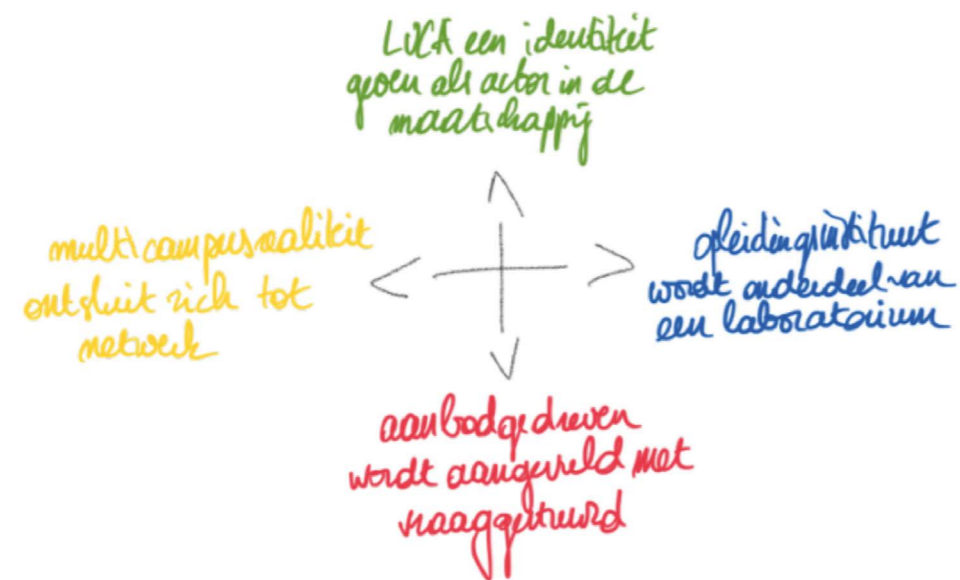 LUCA een identiteit
geven als actor in de
maatschappij
multicampusrealiteit
ontsluit zich tot
netwerk
opleidingsinstituut
wordt onderdeel van
een laboratorium
aanbodgedreven
wordt aangevuld met
vraaggestuurd